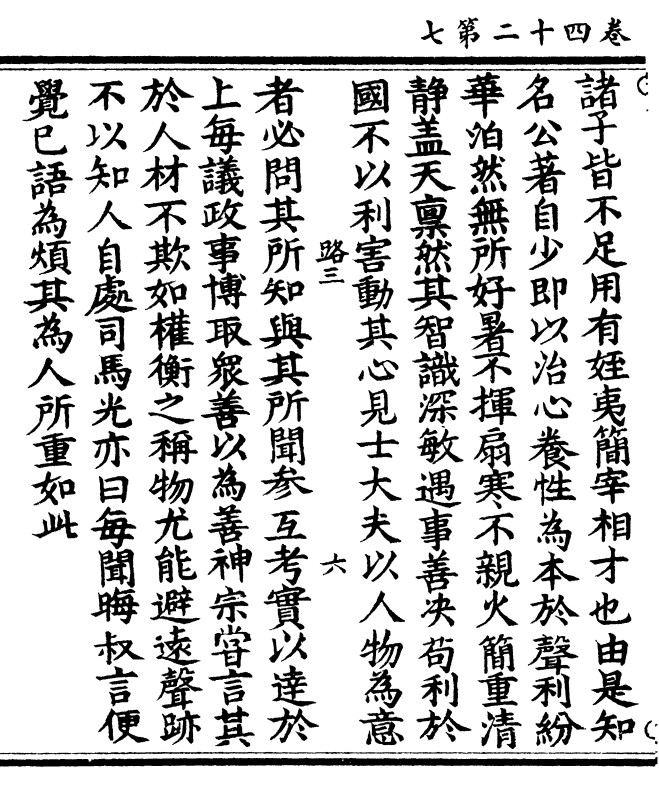 卷四十二第七
諸子皆不足用有姪夷簡宰相才也由是知
名公著自少即以治心養性為本於聲利紛
華泊然無所好暑不揮扇寒不親火簡重清
静盖天禀然其智識深敏遇事善决苟利於
國不以利害動其心見士大夫以人物為意
路三
六
者必問其所知與其所聞参互考實以達於
上每議政事博取衆善以為善神宗嘗言其
於人材不欺如權衡之稱物尤能避遠聲跡
不以知人自處司馬光亦曰每聞晦叔言便
覺已語為煩其為人所重如此